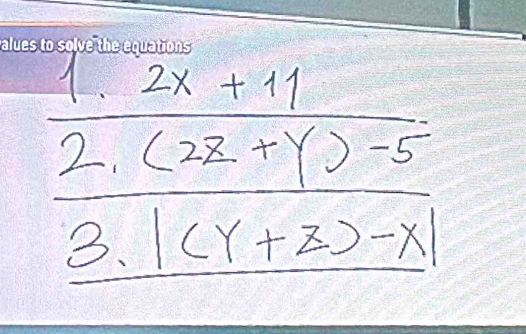 values to solve the equations
1. 2x + 11
2. (2z + y) - 5
3. |(y + z) - x|